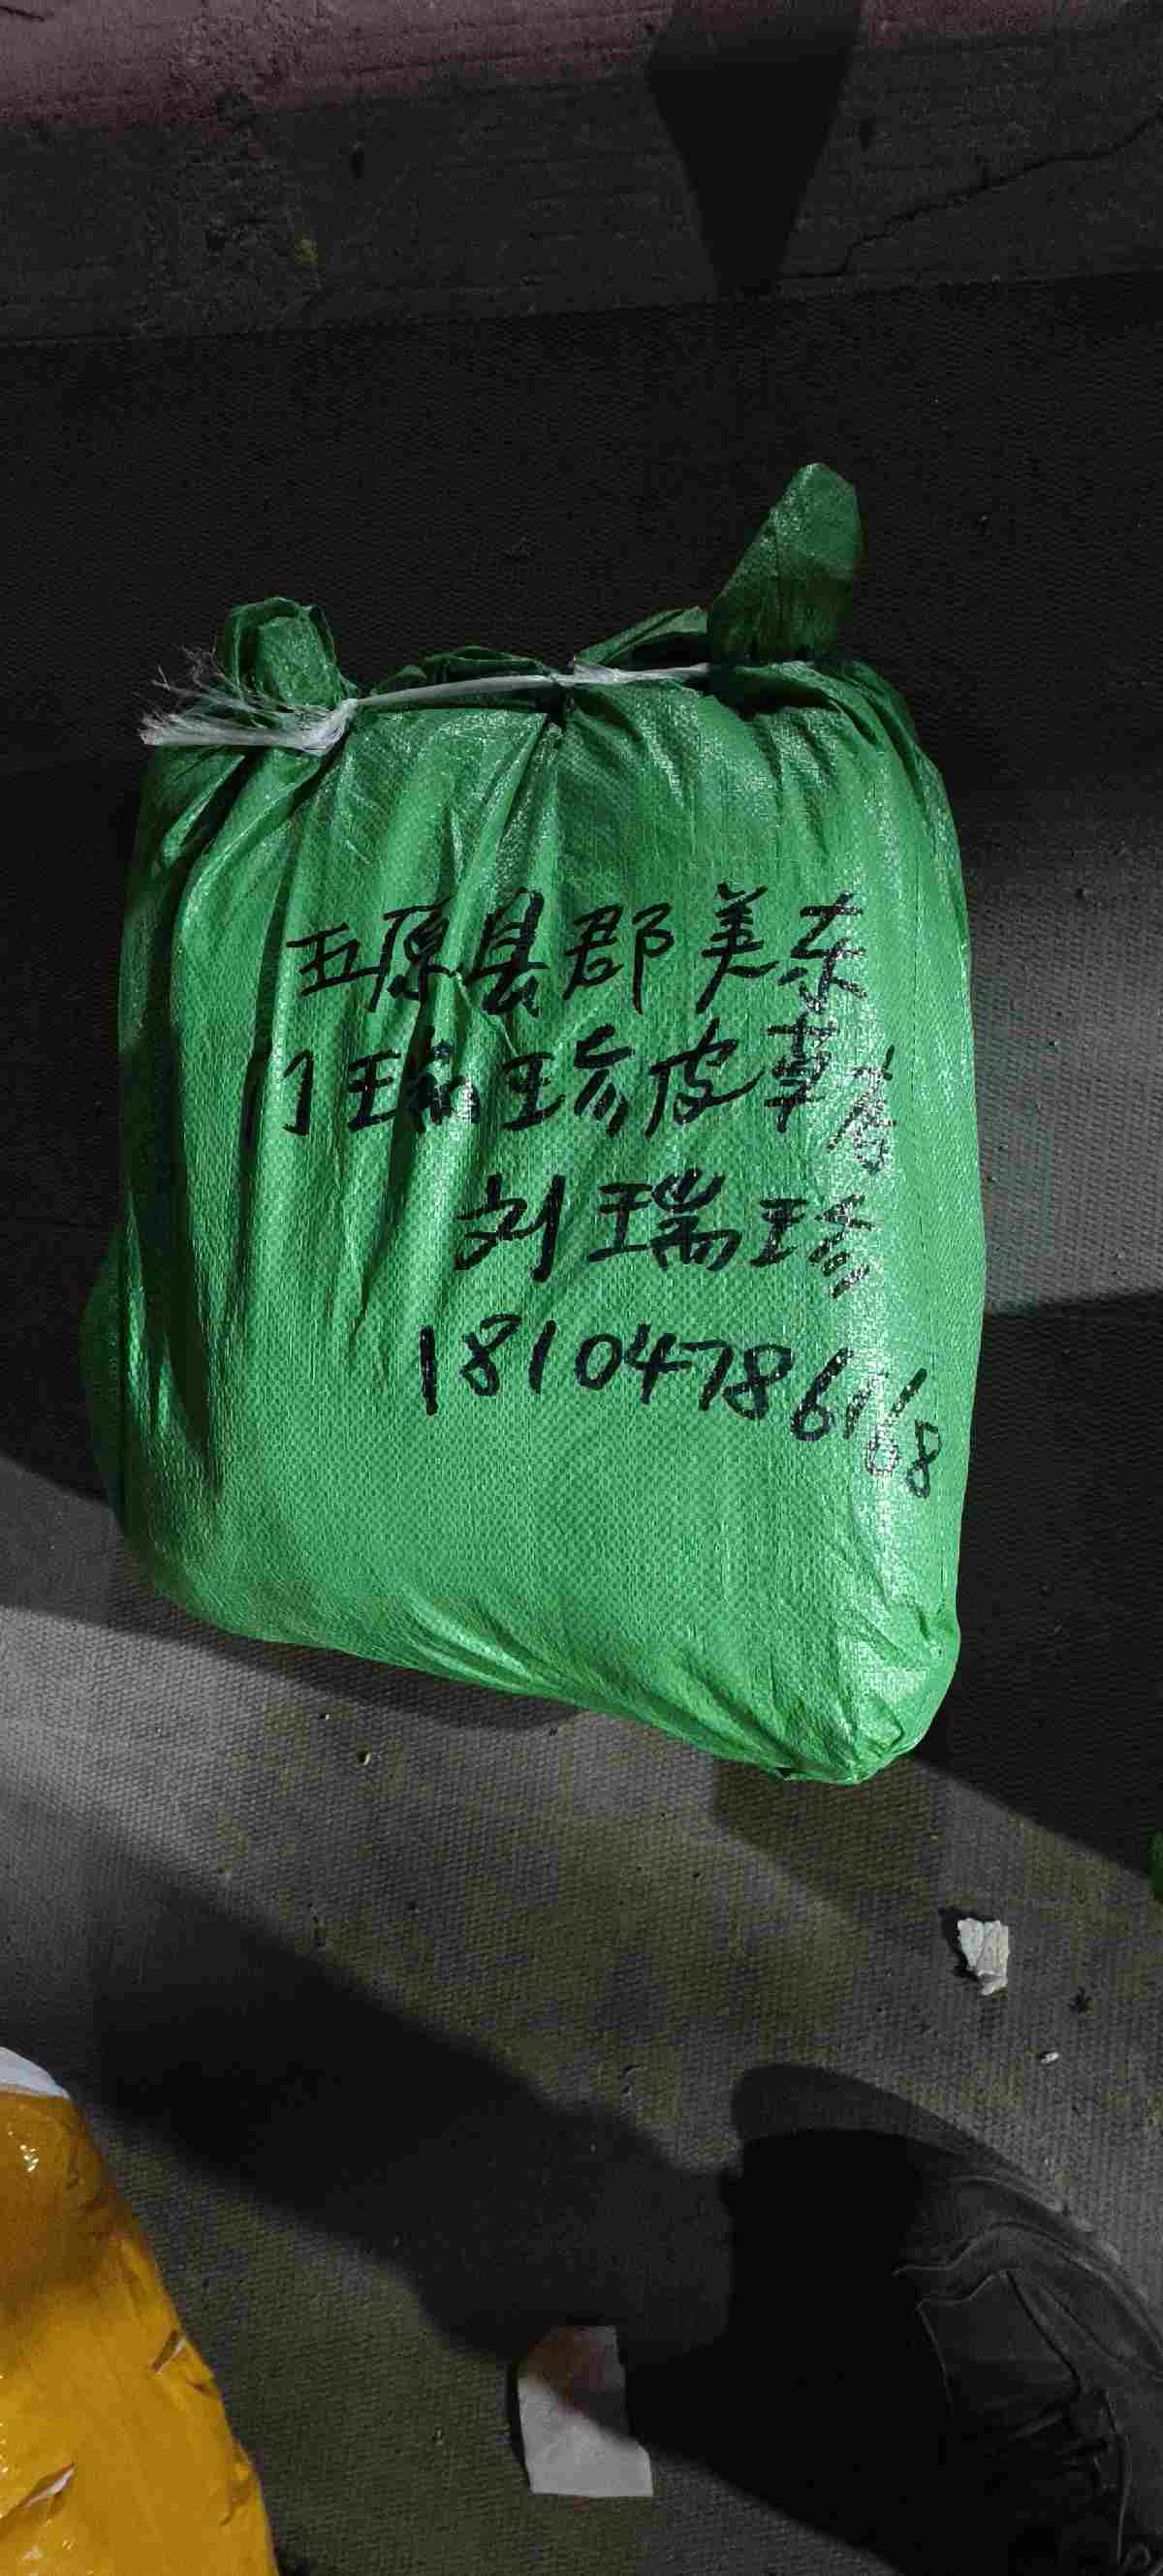 五原县郡美东
门瑞珍皮草房
刘瑞珍
18104786168